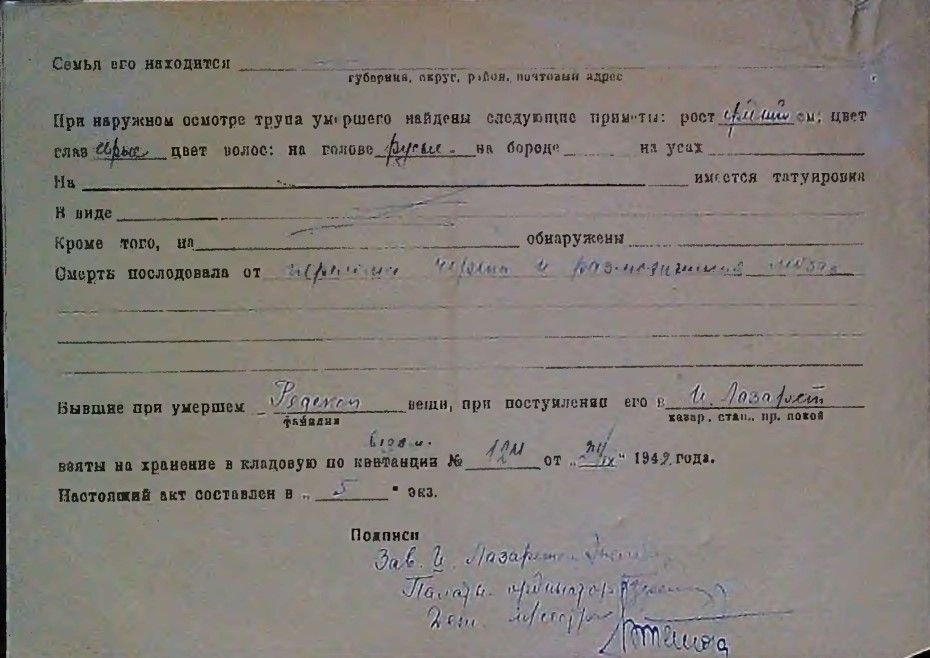 Семья его находится
губерния, округ, район, почтовый адрес
При наружном осмотре трупа умершего найдены следующие приметы: рост средний см; цвет
глаз серые цвет волос: на голове русые на бороде на усах
На имеется татуировка
В виде
Кроме того, на обнаружены
Смерть последовала от черепа и размозжения мозга
Бывшие при умершем Редекоп вещи, при поступлении его в И. Лазарет
фамилия казар., стац., пр. покой
взяты на хранение в кладовую по квитанции № от " " 1942 года.
Настоящий акт составлен в „ 5 " экз.
Подписи
Зав. И. Лазаретом
Палатн. ординатор
Деж. медсестра